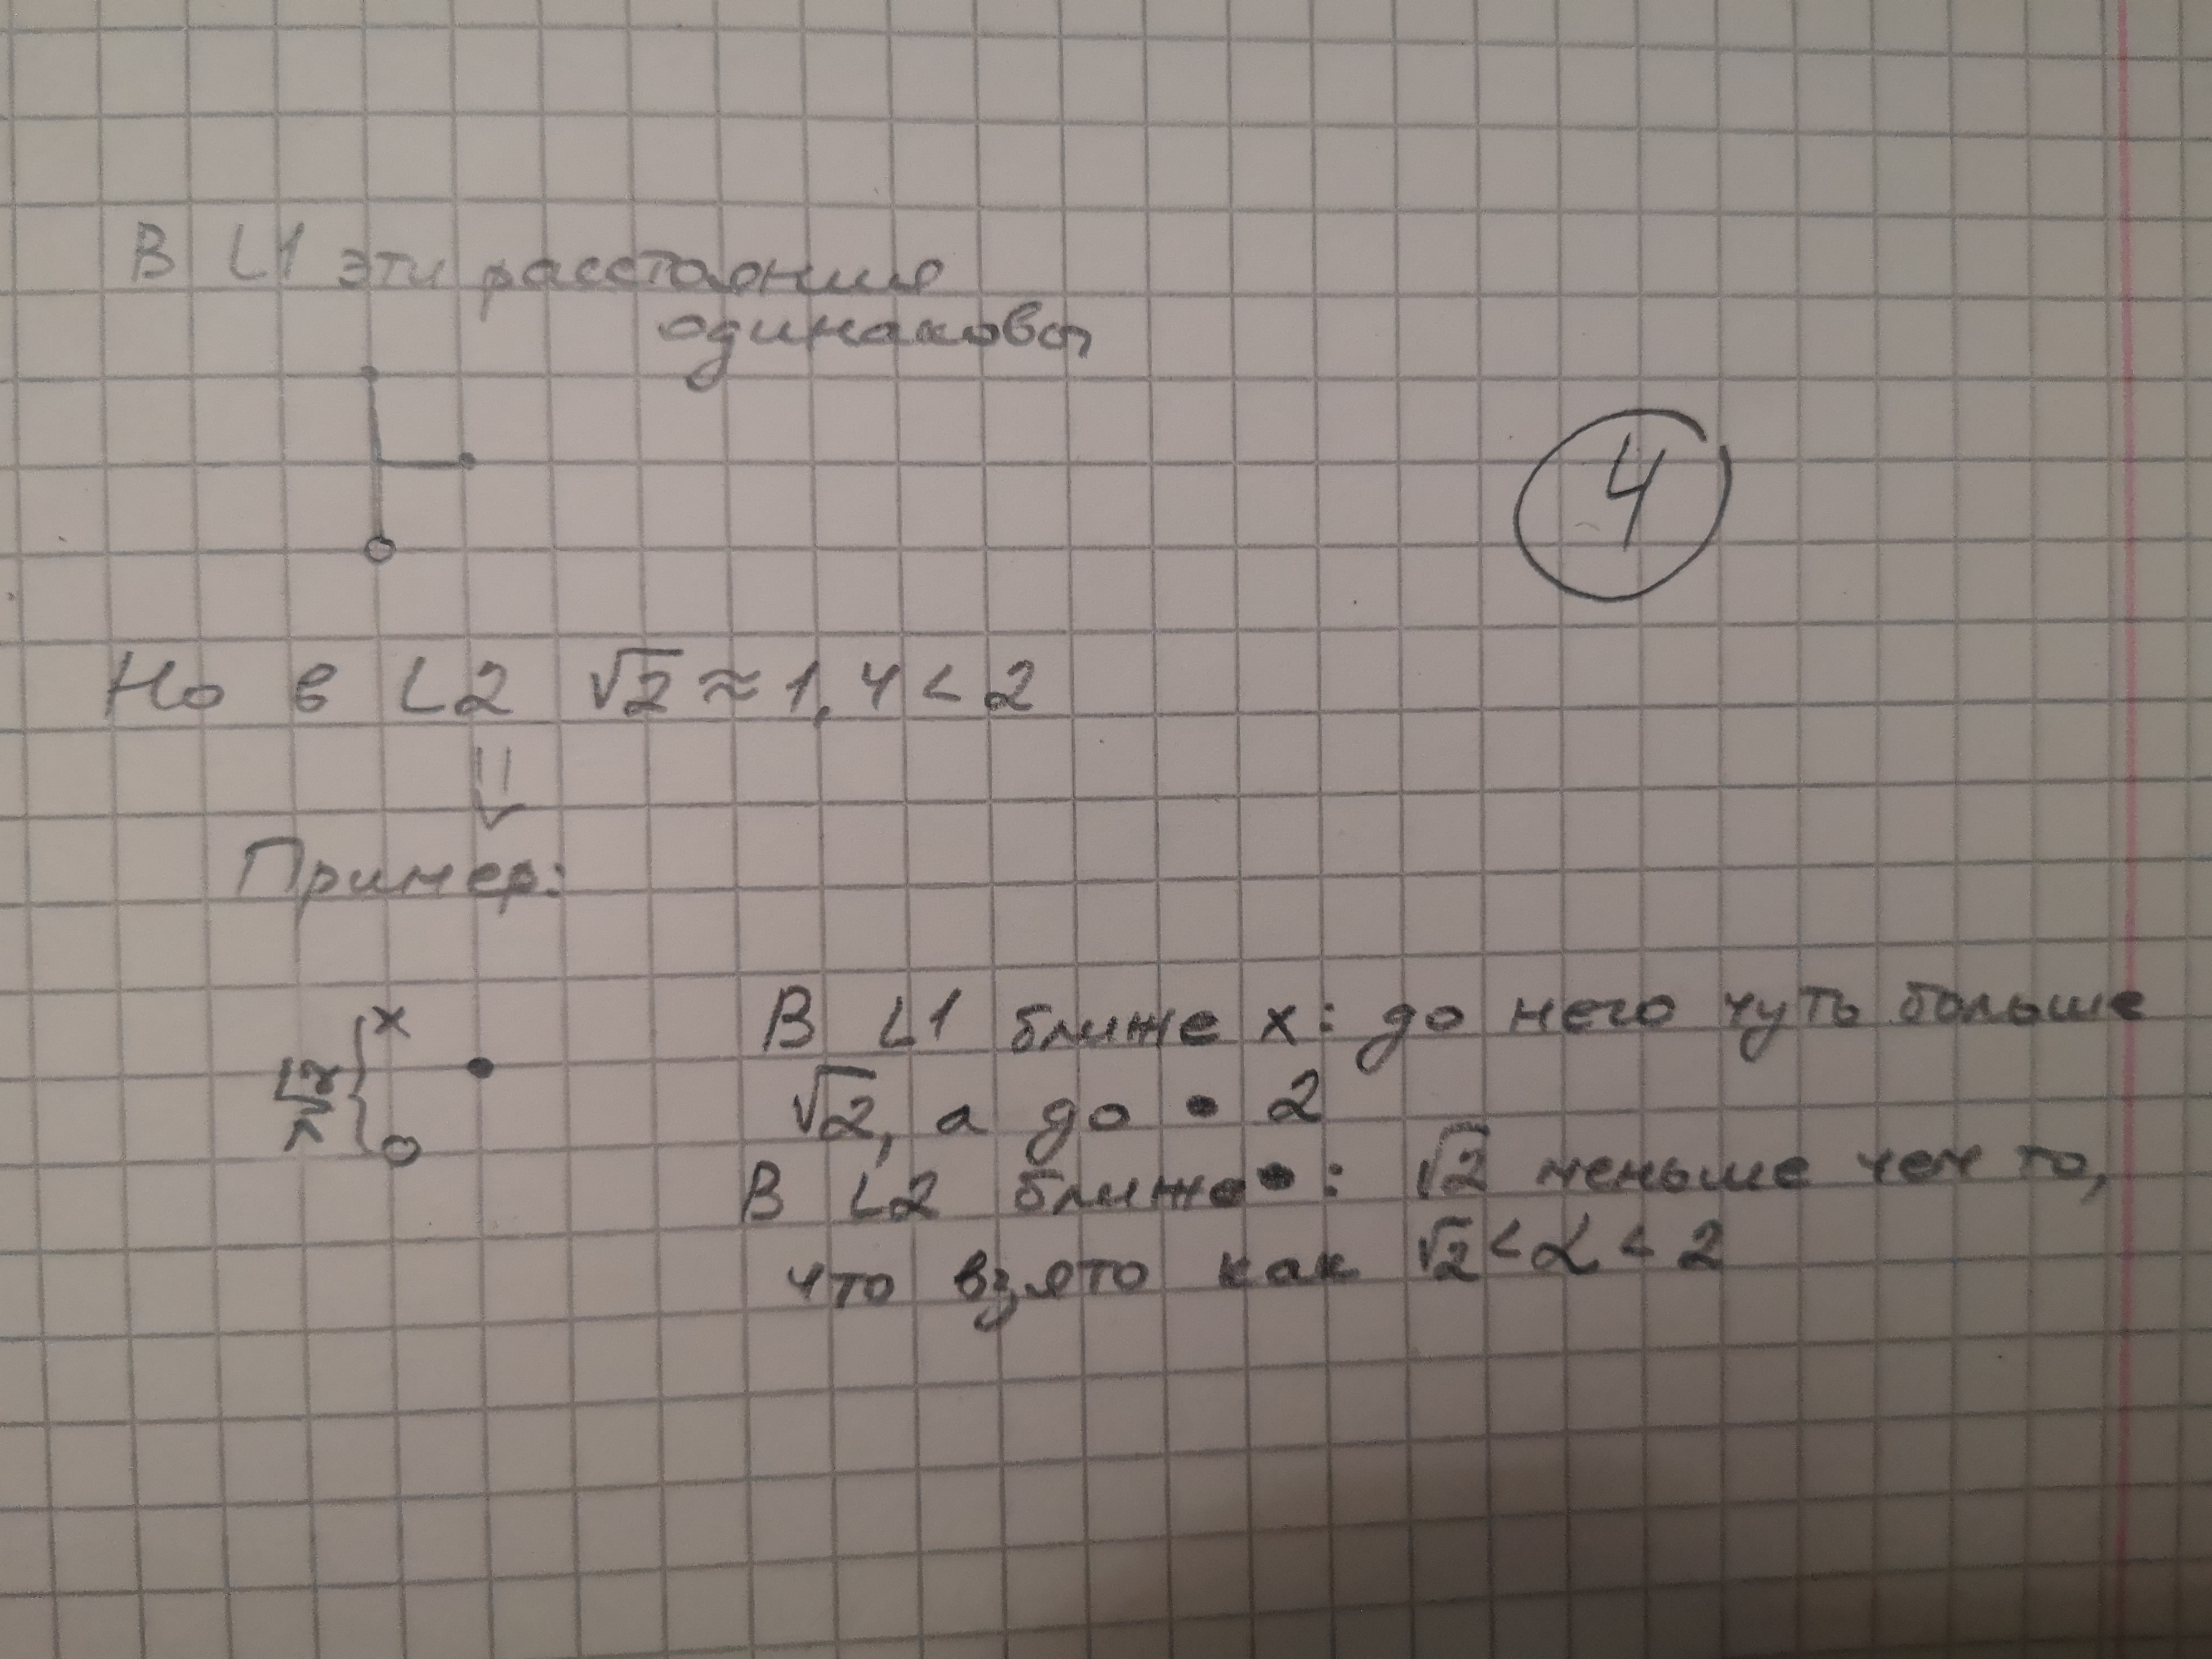 В L1 эти расстояния
одинаковы
4
Но в L2 √2 ≈ 1,4 < 2
⇓
Пример:
x
В L1 ближе x: до него чуть больше
√2, а до • 2
В L2 ближе •: √2 меньше чем то,
что взято как √2 < α < 2